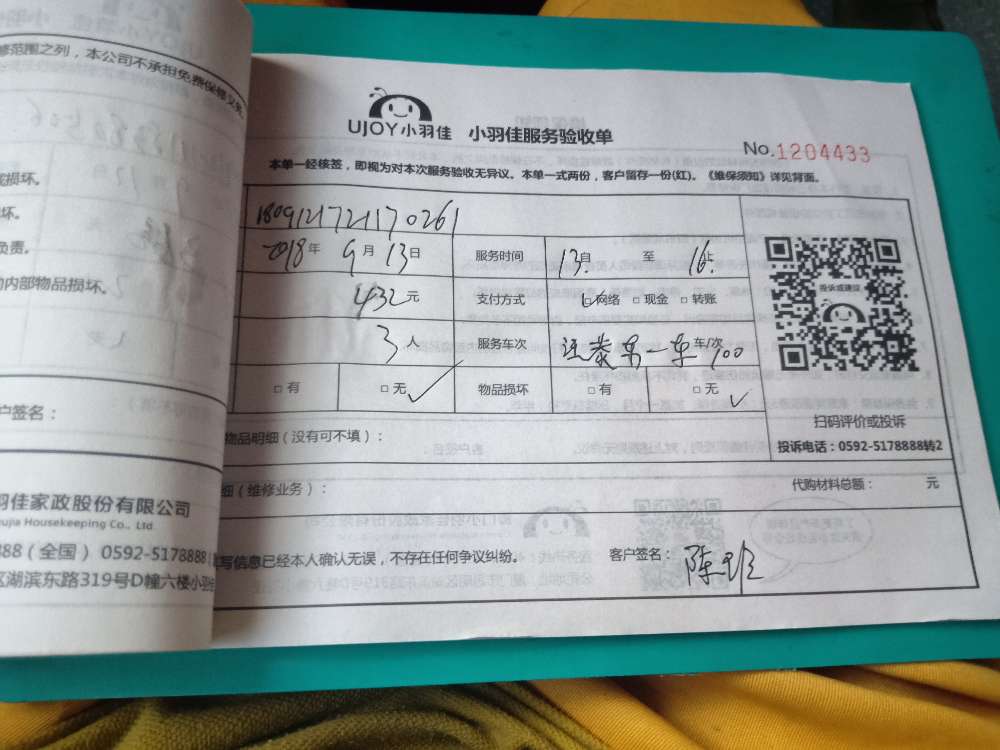 修范围之列，本公司不承担免费保修义务。
损坏。
坏。
负责。
内部物品损坏。
户签名：
羽佳家政股份有限公司
ujia Housekeeping Co., Ltd
888（全国） 0592-5178888
区湖滨东路319号D幢六楼小羽佳
UJOY小羽佳 小羽佳服务验收单
No.1204433
本单一经核签，即视为对本次服务验收无异议。本单一式两份，客户留存一份(红)。《维保须知》详见背面。
1809121721170261
2018年 9月13日 服务时间 13 自 至 16 止
432元 支付方式 □网络 □现金 □转账
3人 服务车次 车/次
□有 □无 ✓ 物品损坏 □有 □无 ✓
投诉或建议
扫码评价或投诉
投诉电话：0592-5178888转2
物品明细（没有可不填）：
细（维修业务）： 代购材料总额： 元
写信息已经本人确认无误，不存在任何争议纠纷。 客户签名： 陈